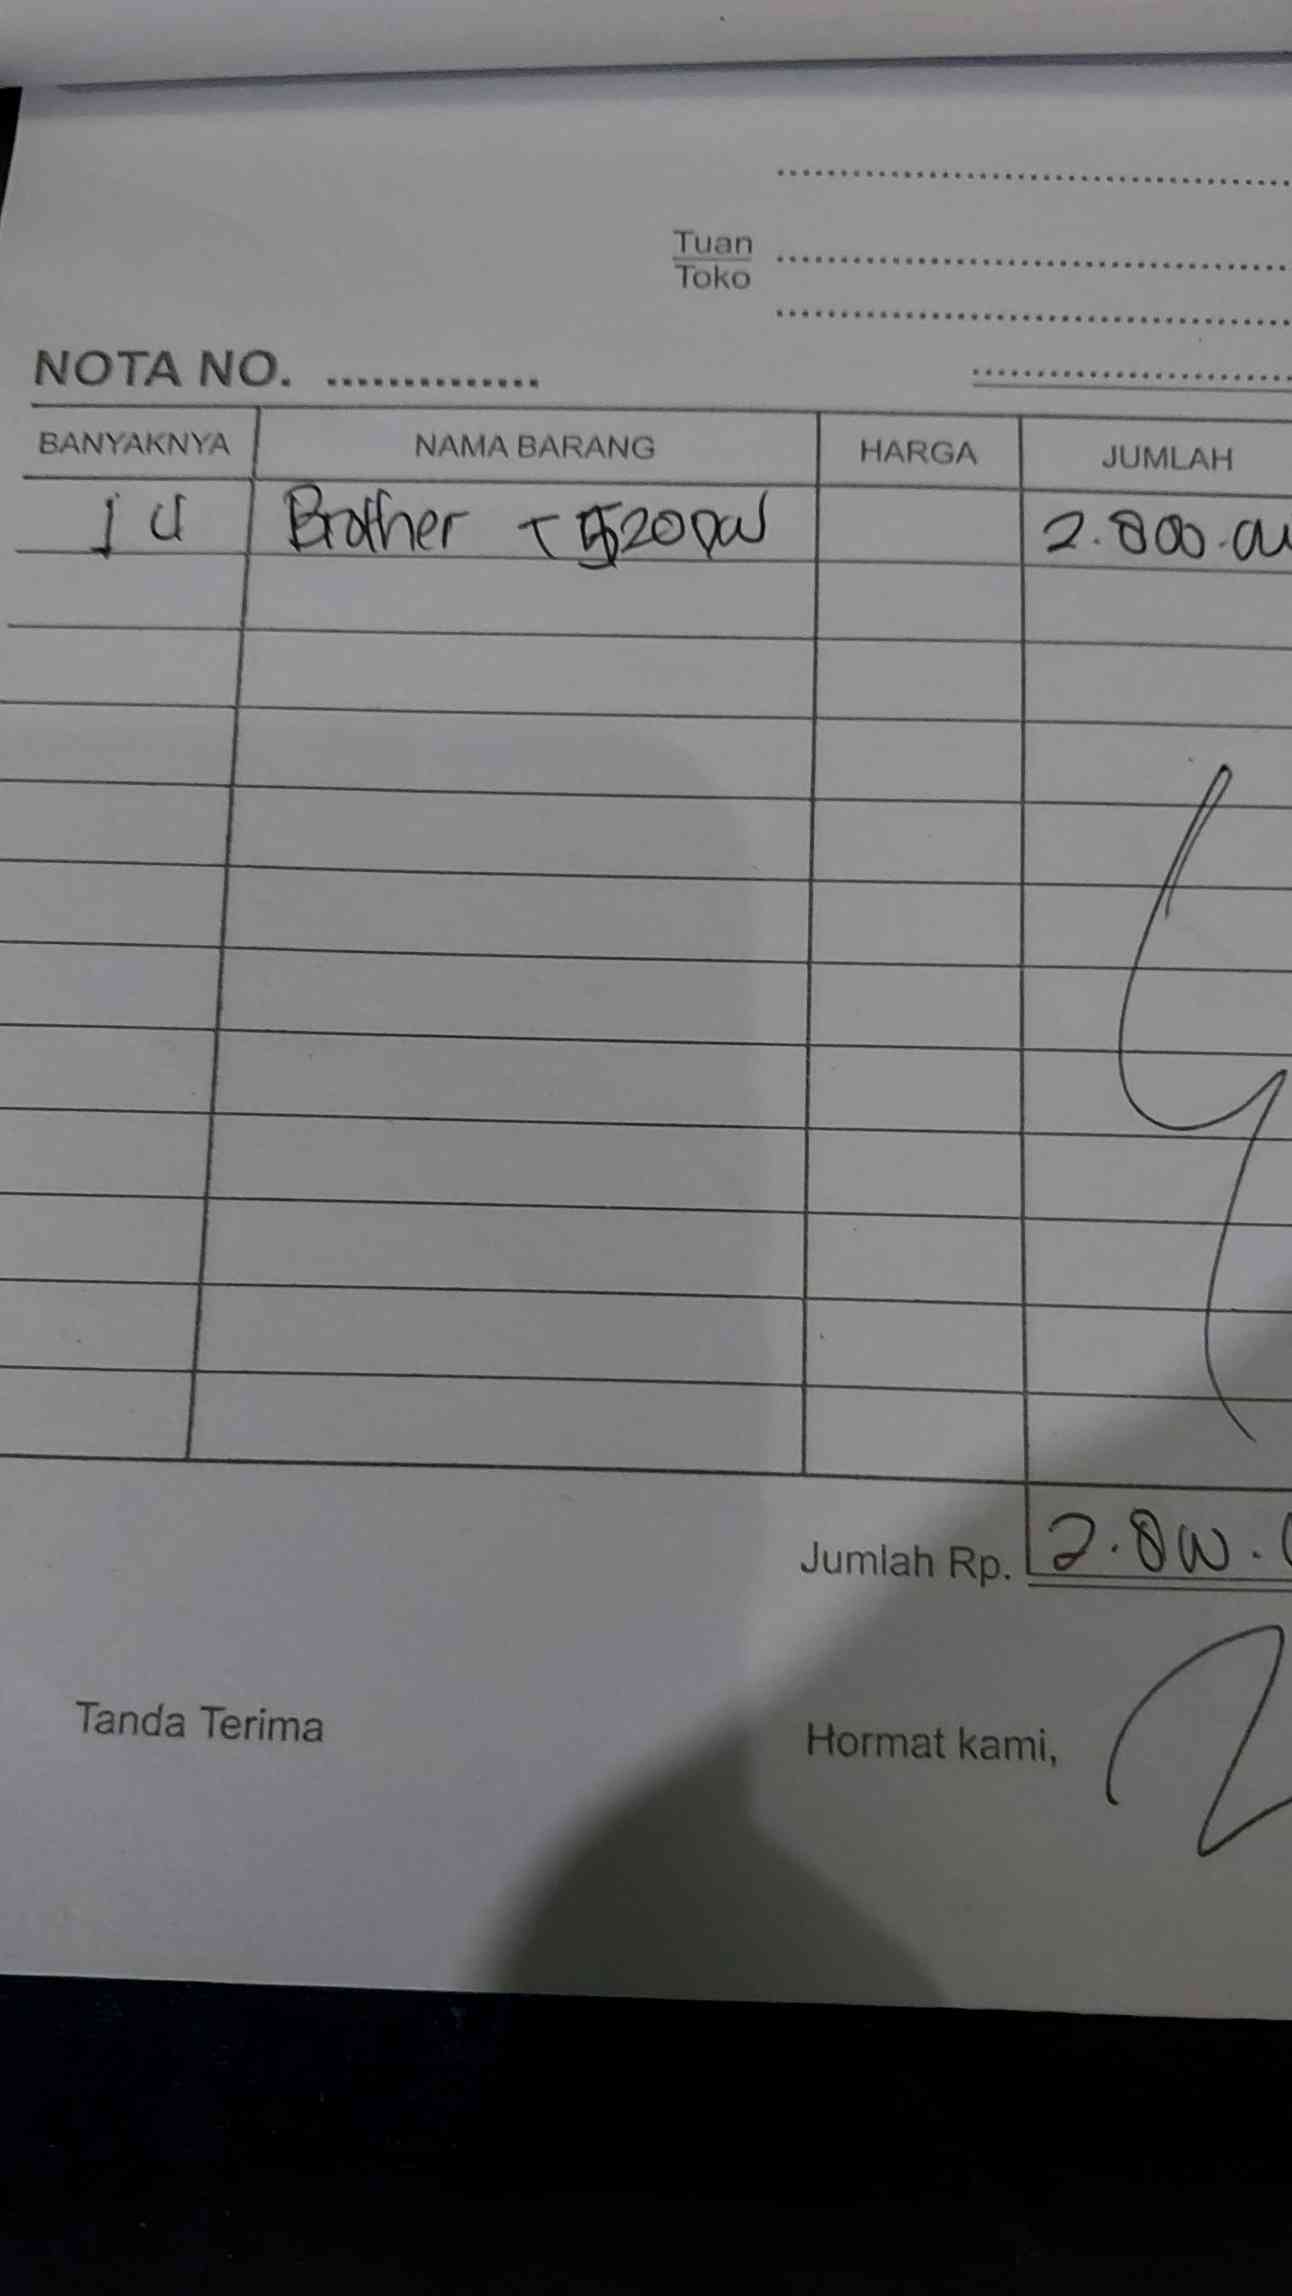 Tuan
Toko
NOTA NO. ..............
BANYAKNYA NAMA BARANG HARGA JUMLAH
1 U Brother T 520DW 2.800.00
Jumlah Rp. 2.800.
Tanda Terima Hormat kami,